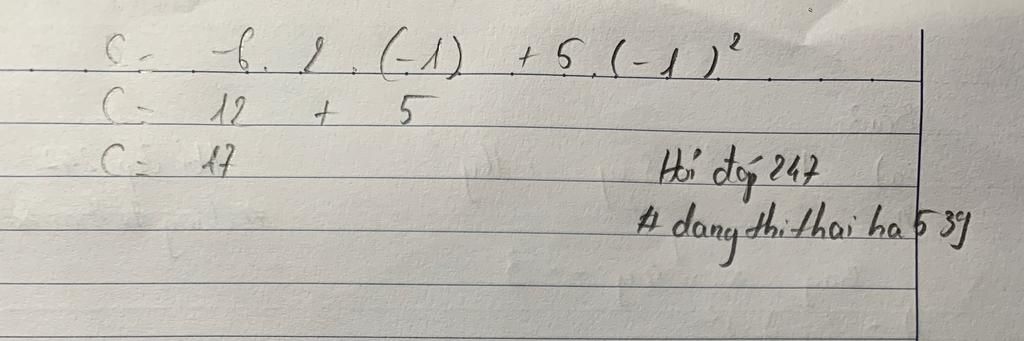 C = -6 . 2 . (-1) + 5 . (-1)²
C = 12 + 5
C = 17
Hỏi đáp 247
# dangthithaiha539